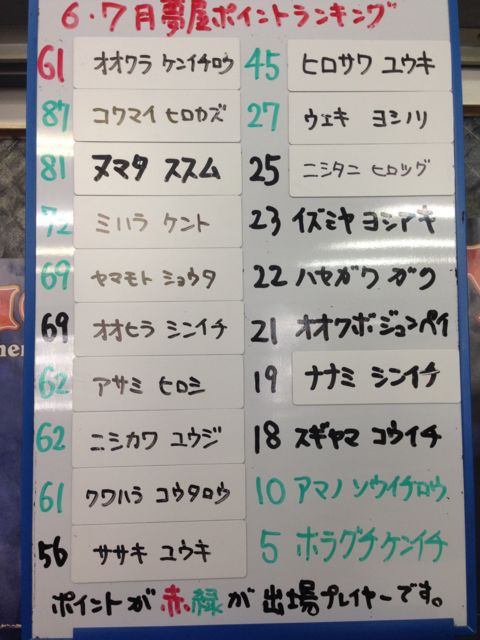 6・7月夢屋ポイントランキング
61 オオクラ ケンイチロウ
87 コウマイ ヒロカズ
81 ヌマタ ススム
72 ミハラ ケント
69 ヤマモト ショウタ
69 オオヒラ シンイチ
62 アサミ ヒロシ
62 ニシカワ ユウジ
61 クワハラ コウタロウ
56 ササキ ユウキ
45 ヒロサワ ユウキ
27 ウエキ ヨシノリ
25 ニシタニ ヒロツグ
23 イズミヤ ヨシアキ
22 ハセガワ ガク
21 オオクボジュンペイ
19 ナナミ シンイチ
18 スギヤマ コウイチ
10 アマノ ソウイチロウ
5 ホラグチケンイチ
ポイントが赤緑が出場プレイヤーです。